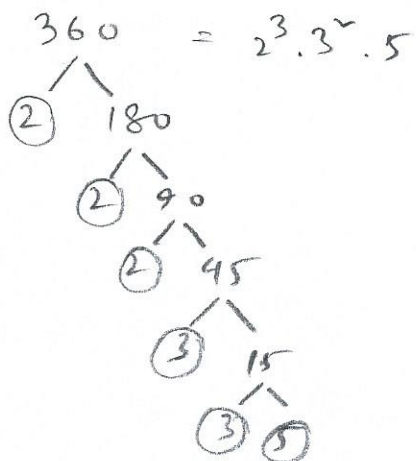 360 = 2³.3².5
2 180
2 90
2 45
3 15
3 5